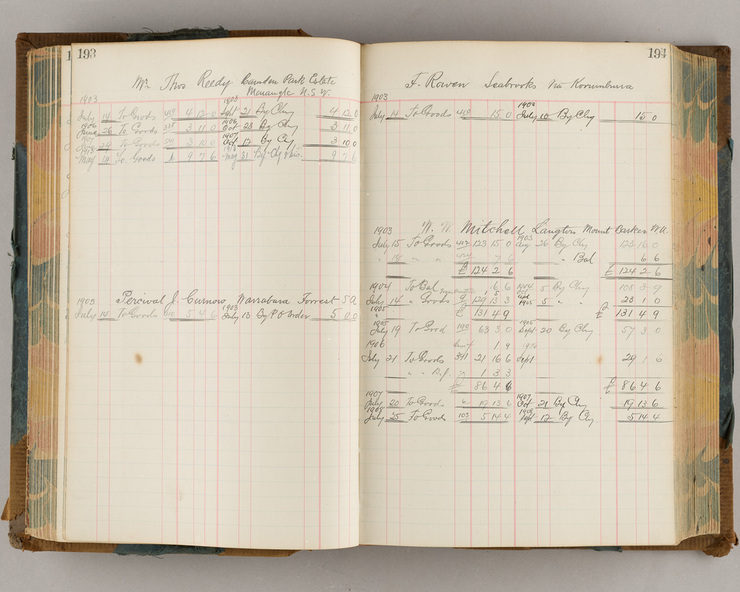 193
Mr Thos Reedy Camden Park Estate
Menangle N.S.W.
1903 1903
July 14 To Goods 4 12 6 Sept 21 By Chq 4 12 6
1906 1906
June 26 To Goods 3 11 0 Oct 23 By Chq 3 11 0
1907
24 To Goods 3 10 0 Oct 12 By Cq 3 10 0
May 14 To Goods 9 7 6 May 31 By Chq 9 7 6
Percival J. Curnow, Warrabura Forrest S.A.
1903 1903
July 14 To Goods 5 4 6 July 13 By P.O Order 5 0 0
194
F. Rowen Seabrooks Via Korumburra
1903
July 14 To Goods 15 0 July 10 By Chq 15 0
W. W. Mitchell Langton Mount Barker W.A.
1903 1903
July 15 To Goods 123 15 0 Aug 26 By Chq
" " " 7 6 " " Bal 6 6
£ 124 2 6 £ 124 2 6
1904 To Bal 6 6 5 By Chq 108 3 9
July 14 " Goods 129 13 3 5 " " 23 1 0
£ 131 4 9 £ 131 4 9
1905 1905
July 19 To Good 190 63 3 0 Sept 20 By Chq 57 3 0
1906 1 9
July 21 To Goods 341 21 16 6 Sept 29 1 6
" " 1 3 3
£ 86 4 6 £ 86 4 6
1907 1907
July 20 To Goods 19 13 6 Oct 21 By Chq 19 13 6
1908 1908
July 25 To Goods 103 5 14 4 Sept 12 By Cq 5 14 4